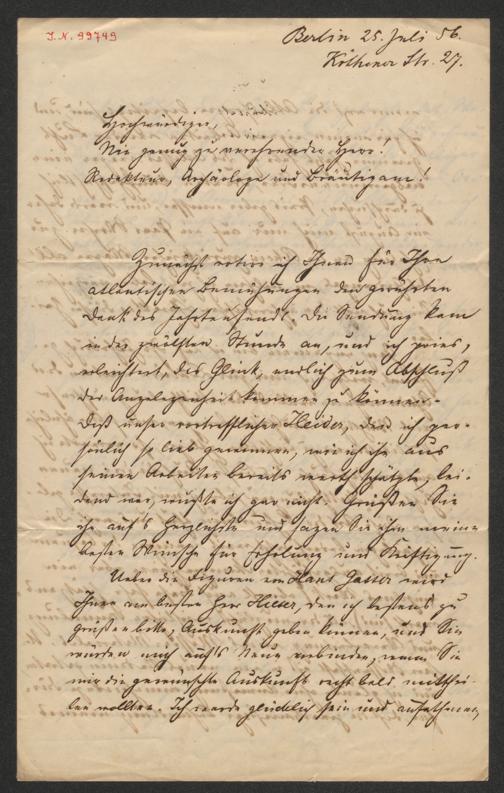 J.N. 99749
Berlin 25. Juli 56.
Köthener Str. 27.
Hochwürdiger,
Nie genug zu verehrender Herr!
Redakteur, Archäologe und Bräutigam!
Zunächst votire ich Ihnen für Ihre
atlantischen Bemühungen den gerührten
Dank des Jahrtausends! Die Sendung kam
in der zwölften Stunde an, und ich pries,
erleichtert, das Glück, endlich zum Abschluß
der Angelegenheit kommen zu können.
Daß unser vortrefflicher Heider, den ich per-
sönlich so lieb gewonnen, wie ich ihn aus
seinen Arbeiten bereits werth schätzte, lei-
dend war, wußte ich gar nicht. Grüßen Sie
ihn auf's Herzlichste und sagen Sie ihm meine
besten Wünsche für Erholung und Kräftigung.
Ueber die Figuren von Hans Gasser wird
Ihnen am besten Herr Hieser, den ich bestens zu
grüßen bitte, Auskunft geben können, und Sie
würden mich aufs Neue verbinden, wenn Sie
mir die gewünschte Auskunft recht bald mitthei-
len wollten. Ich werde glücklich sein und aufathmen,